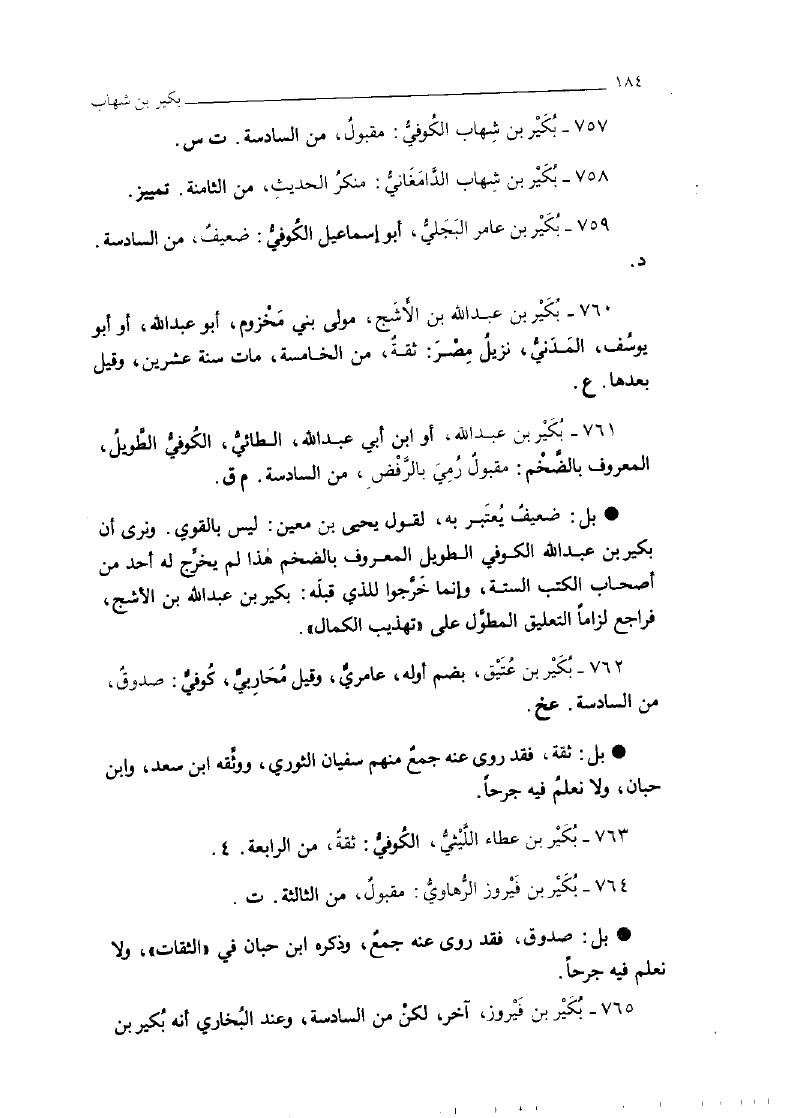 ١٨٤ بكير بن شهاب
٧٥٧ ـ بُكَيْر بن شِهاب الكُوفيُّ: مقبولٌ، من السادسة. ت س.
٧٥٨ ـ بُكَيْر بن شِهاب الدَّامَغَانيُّ: منكرُ الحديثِ، من الثامنة. تمييز.
٧٥٩ ـ بُكَيْر بن عامر البَجَليُّ، أبو إسماعيل الكُوفيُّ: ضعيفٌ، من السادسة.
د.
٧٦٠ ـ بُكَيْر بن عبدالله بن الأَشَج، مولى بني مَخْزوم، أبو عبدالله، أو أبو
يوسُف، المَدَنيُّ، نزيلُ مِصْرَ: ثقةٌ، من الخامسة، مات سنة عشرين، وقيل
بعدها. ع.
٧٦١ ـ بُكَيْر بن عبدالله، أو ابن أبي عبدالله، الطائيُّ، الكُوفيُّ الطَّويلُ،
المعروف بالضَّخْم: مقبولٌ رُمِيَ بالرَّفْضِ، من السادسة. م ق.
● بل: ضعيفٌ يُعتَبر به، لقول يحيى بن معين: ليس بالقوي. ونرى أن
بكير بن عبدالله الكوفي الطويل المعروف بالضخم هٰذا لم يخرِّج له أحد من
أصحاب الكتب الستة، وإنما خَرَّجوا للذي قبلَه: بكير بن عبدالله بن الأشج،
فراجع لزاماً التعليق المطوَّل على «تهذيب الكمال».
٧٦٢ ـ بُكَيْر بن عُتَيْق، بضم أوله، عامريٌّ، وقيل مُحَاربيٌّ، كُوفيٌّ: صدوقٌ،
من السادسة. عخ.
● بل: ثقة، فقد روى عنه جمعٌ منهم سفيان الثوري، ووثَّقه ابن سعد، وابن
حبان، ولا نعلمُ فيه جرحاً.
٧٦٣ ـ بُكَيْر بن عطاء اللَّيْثيُّ، الكُوفيُّ: ثقةٌ، من الرابعة. ٤.
٧٦٤ ـ بُكَيْر بن فَيْروز الرُّهاويُّ: مقبولٌ، من الثالثة. ت.
● بل: صدوق، فقد روى عنه جمعٌ، وذكره ابن حبان في «الثقات»، ولا
نعلم فيه جرحاً.
٧٦٥ ـ بُكَيْر بن فَيْروز، آخر، لكنْ من السادسة، وعند البُخاري أنه بُكير بن